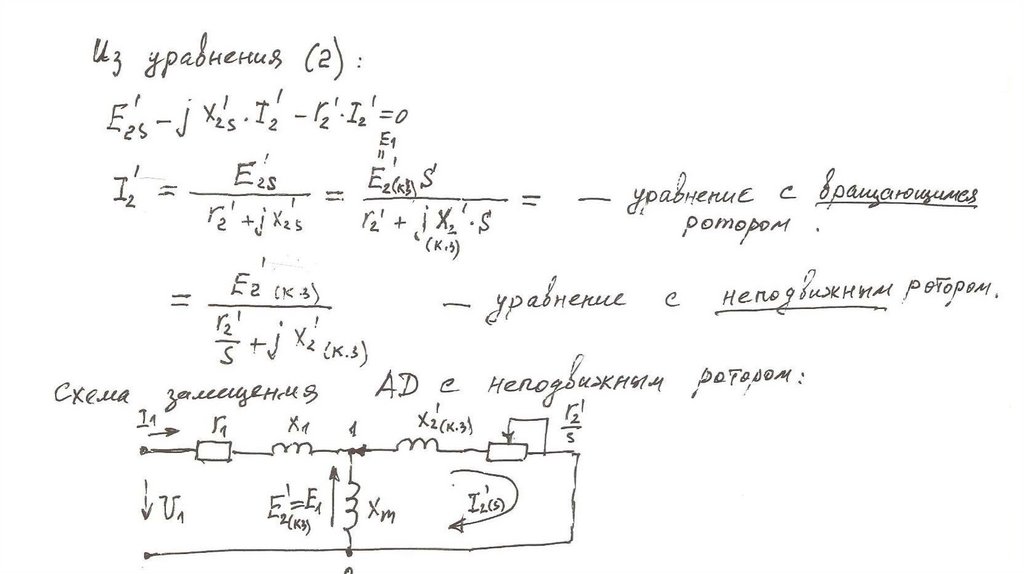 Из уравнения (2):
E₂ₛ' − j x₂ₛ' · I₂' − r₂' · I₂' = 0
E₁
"
I₂' = E₂ₛ' / (r₂' + j x₂ₛ') = E₂(к.з)' S / (r₂' + j x₂'(к.з) · S) = — уравнение с вращающимся
ротором.
= E₂'(к.з) / (r₂'/s + j x₂'(к.з)) — уравнение с неподвижным ротором.
Схема замещения АД с неподвижным ротором:
I₁ r₁ x₁ 1 x₂'(к.з) r₂'/s
U₁ E₂(кз)' = E₁ xm I₂'(s)